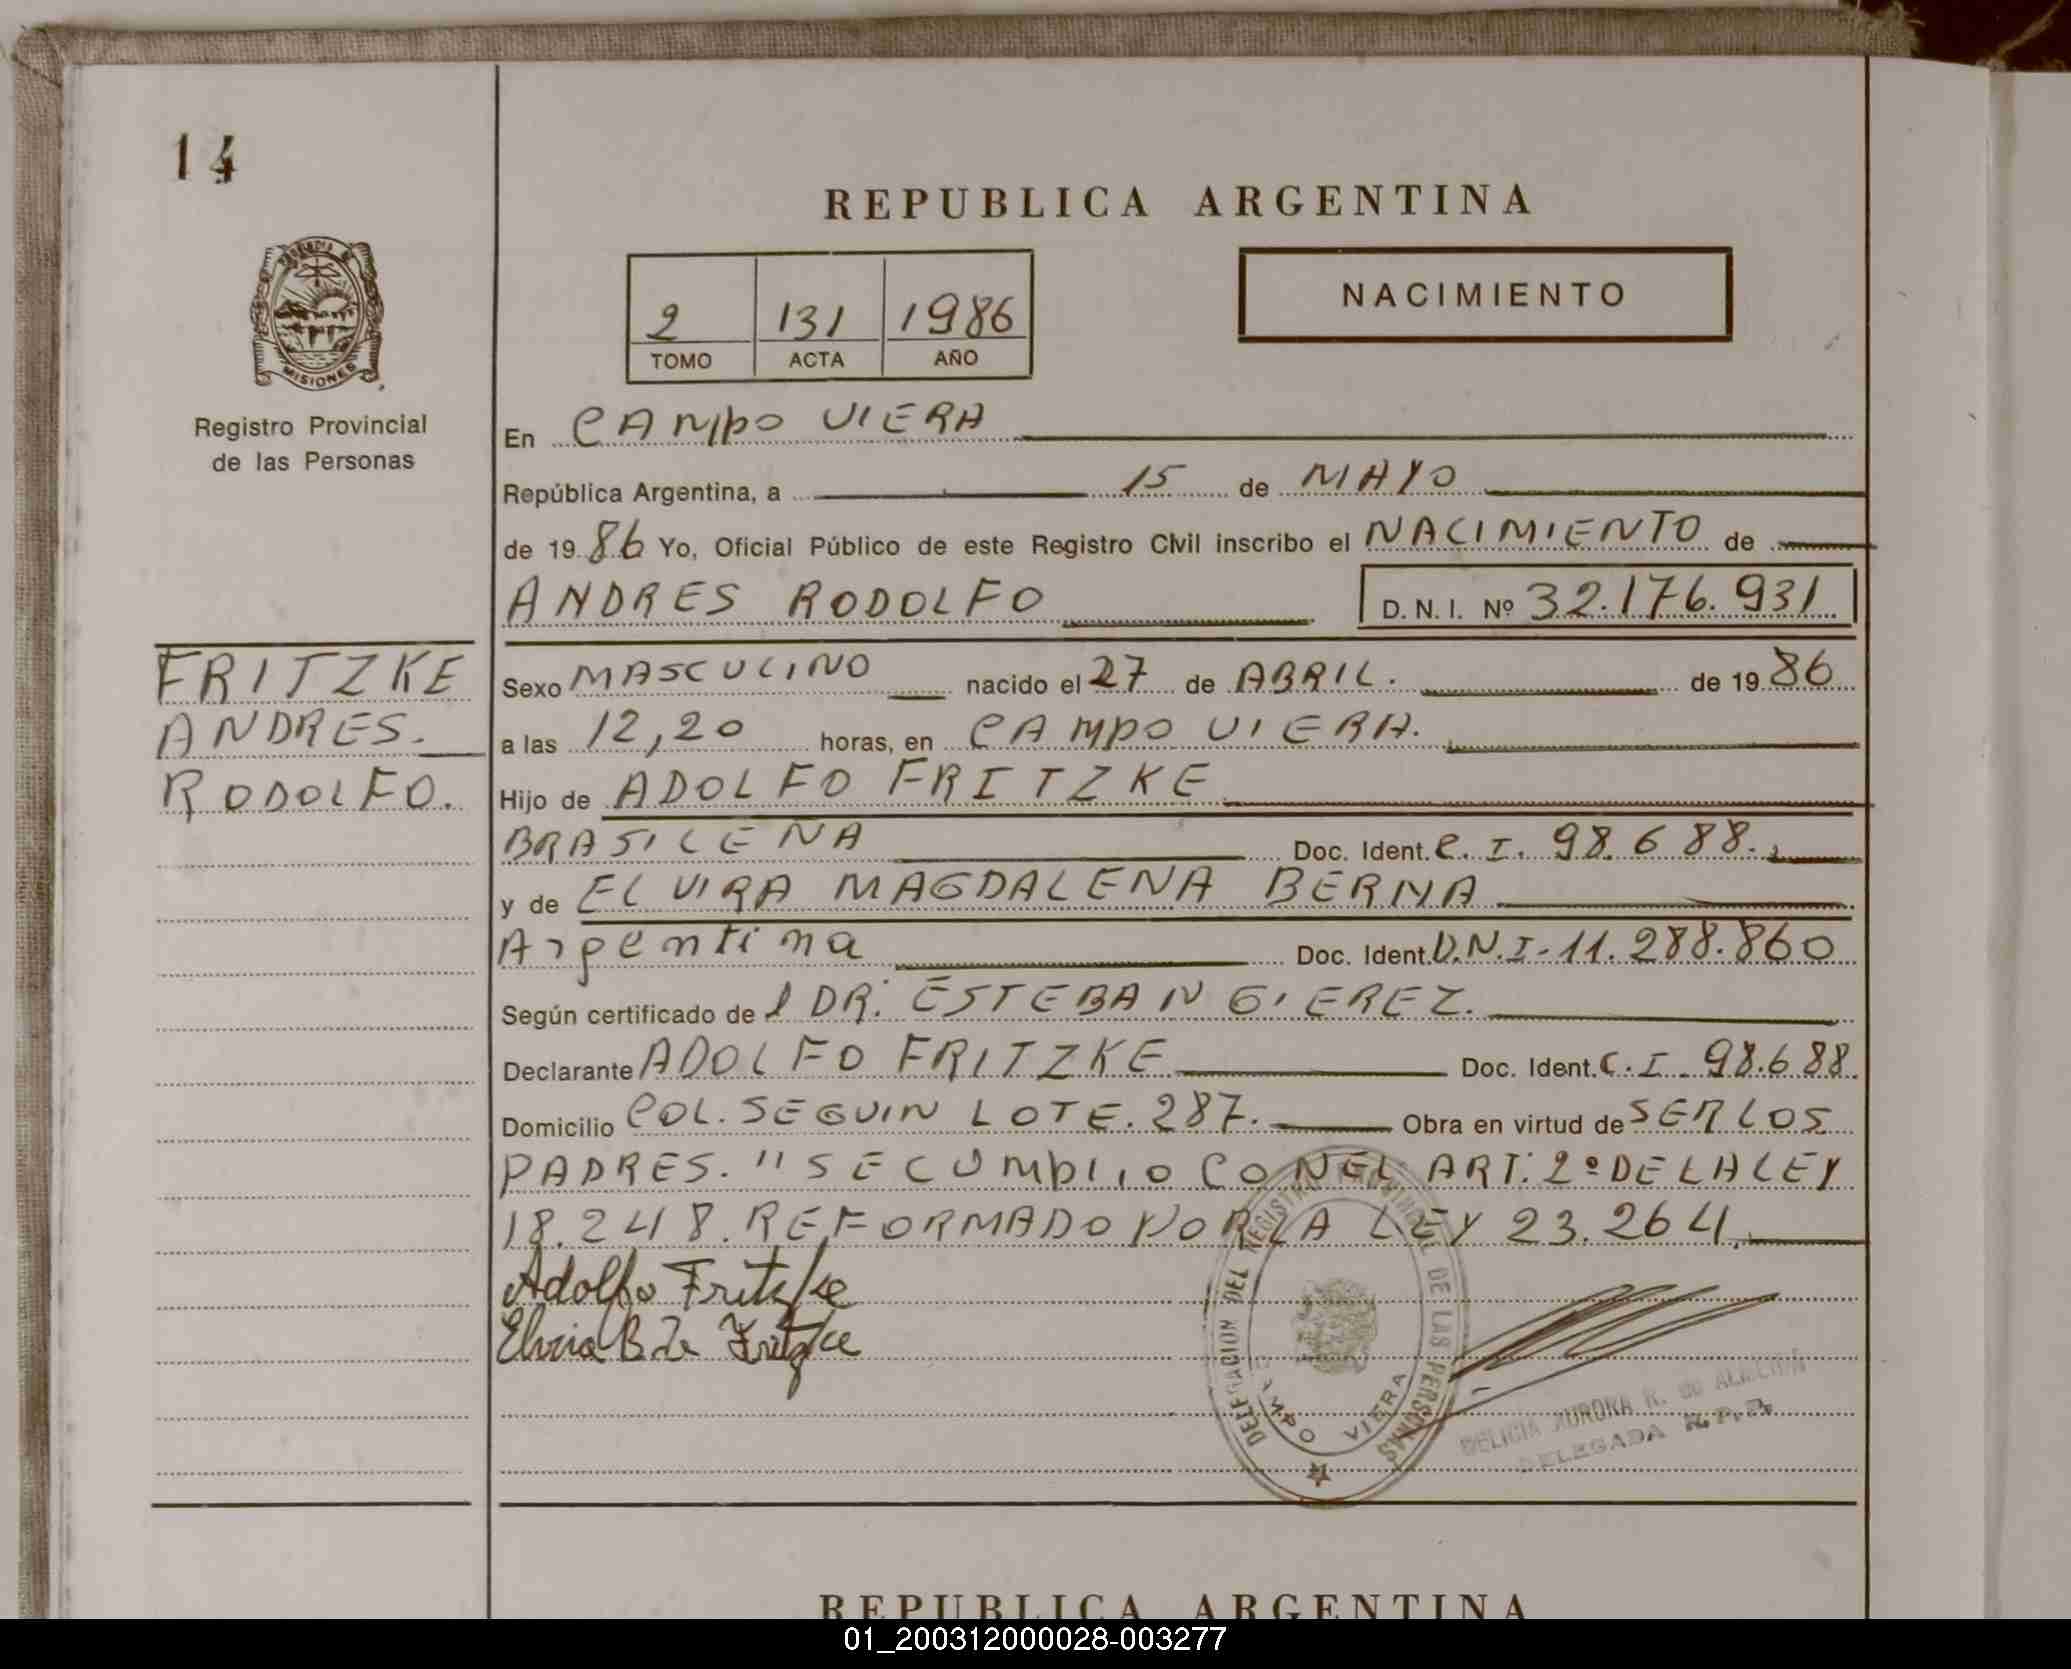 14
REPUBLICA ARGENTINA
PROVINCIA DE
MISIONES
2 131 1986
TOMO ACTA AÑO
NACIMIENTO
Registro Provincial
de las Personas
En CAMPO VIERA
República Argentina, a 15 de MAYO
de 19 86 Yo, Oficial Público de este Registro Civil inscribo el NACIMIENTO de
ANDRES RODOLFO D. N. I. Nº 32.176.931
FRITZKE
ANDRES.
RODOLFO.
Sexo MASCULINO nacido el 27 de ABRIL. de 19 86
a las 12,20 horas, en CAMPO VIERA.
Hijo de ADOLFO FRITZKE
BRASILEÑA Doc. Ident. C. I. 98.688.
y de ELVIRA MAGDALENA BERNA
Argentina Doc. Ident. D.N.I-11.288.860
Según certificado de l DR. ESTEBAN GIEREZ.
Declarante ADOLFO FRITZKE Doc. Ident. C.I. 98.688.
Domicilio COL. SEGUIN LOTE. 287. Obra en virtud de SER LOS
PADRES. "SE CUMPLIO CON EL ART. 2º DE LA LEY
18.248. REFORMADO POR LA LEY 23.264.
Adolfo Fritzke
Elvira B de Fritzke
DELEGACION DEL REGISTRO PROVINCIAL DE LAS PERSONAS
CAMPO VIERA
DELICIA AURORA R. de ALARCON
DELEGADA R.P.P.
REPUBLICA ARGENTINA
01_200312000028-003277